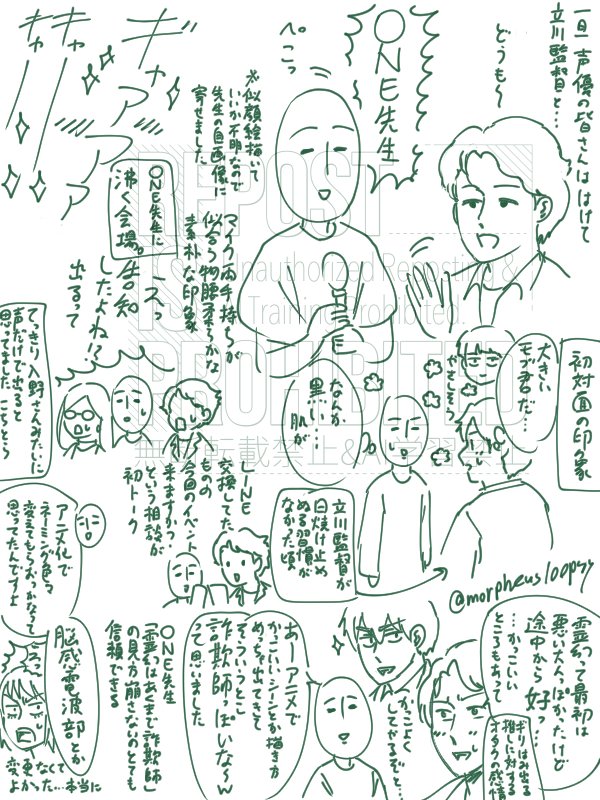 一旦声優の皆さんははけて
立川監督と…
どうも〜
ONE先生
ぺこっ
※似顔絵描いて
いいか不明なので
先生の自画像に
寄せました
ギャ
ギャ
ギ
アアア
ONE先生に
沸く会場。
マイク両手持ちが
似合う物腰柔らかな
素朴な印象
えっ
告知
したよね!?
出るって
てっきり入野さんみたいに
声だけで出ると
思ってました こちとら
初対面の印象
大きい
モブ君だ…
やさしそう
なんか
黒い…
肌が
立川監督が
日焼け止め
める習慣が
なかった頃
LINE
交換してた
ものの
今回のイベント
来ますか？
という相談が
初トーク
アニメ化で
ネーミング色々
変えてもらおっかなって
思ってたんですよ
脳感電波部とか
変更なくて
よかった…本当に
@morpheusloopyy
霊幻って最初は
悪い大人っぽかったけど
…かっこいい
途中から好っ…
ところもあって
ギリはみ出る
推しに対する
オタクの感情
かっこよく
してやるぞと…
あーアニメで
かっこいいシーンとか描き方
めっちゃ出てきて
そういうとこ
詐欺師っぽいな〜w
って思いました
ONE先生
「霊幻はあくまで詐欺師」
の見方崩さないのとても
信頼できる
REPOST
Unauthorized Reposting &
Training Prohibited.
PROHIBITED
無断転載禁止&